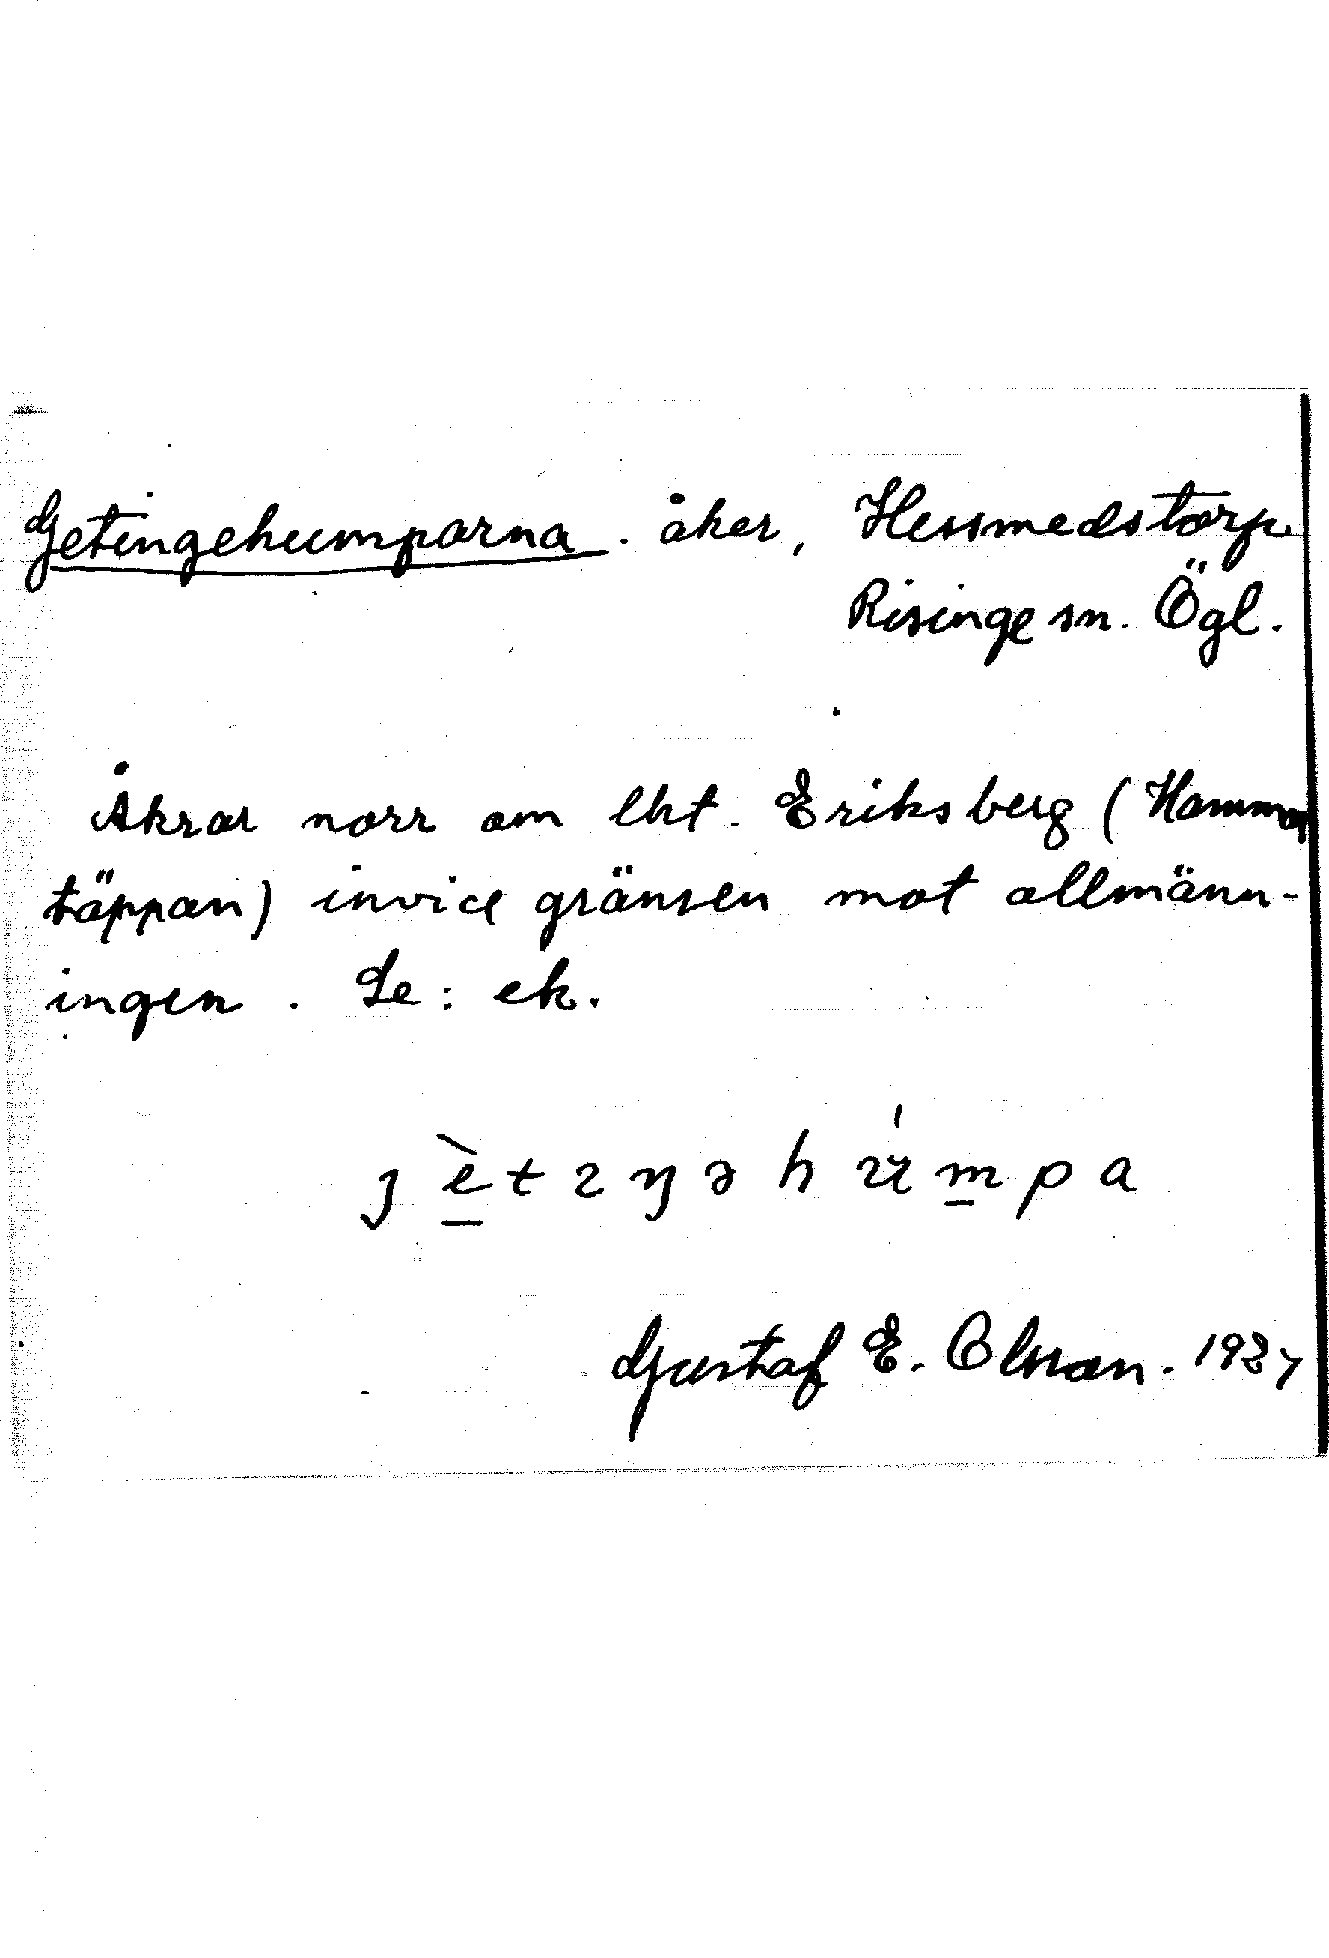 Getingehumparna. åker, Hessmedstorp
Risinge sn. Ögl.
Åkrar norr om lht. Eriksberg (Hammar
täppan) invid gränsen mot allmänn-
ingen. Se: ek.
Gustaf E. Olsson. 1927